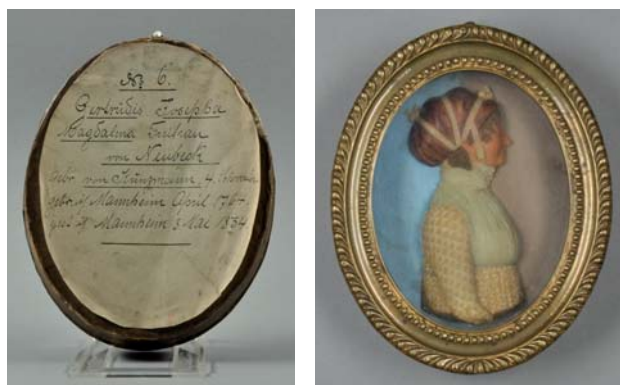 No 6.
Gertrudis Josepha
Magdalena Freifrau
von Neubeck
gebr von
gebr zu Mannheim April 1764
gest zu Mannheim 3 Mai 1834